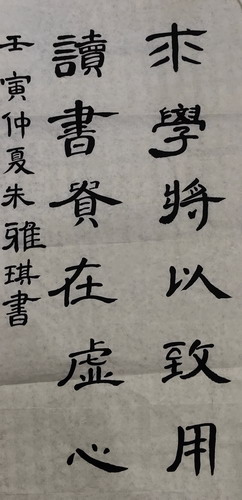 求學將以致用
讀書貴在虛心
壬寅仲夏朱雅琪書